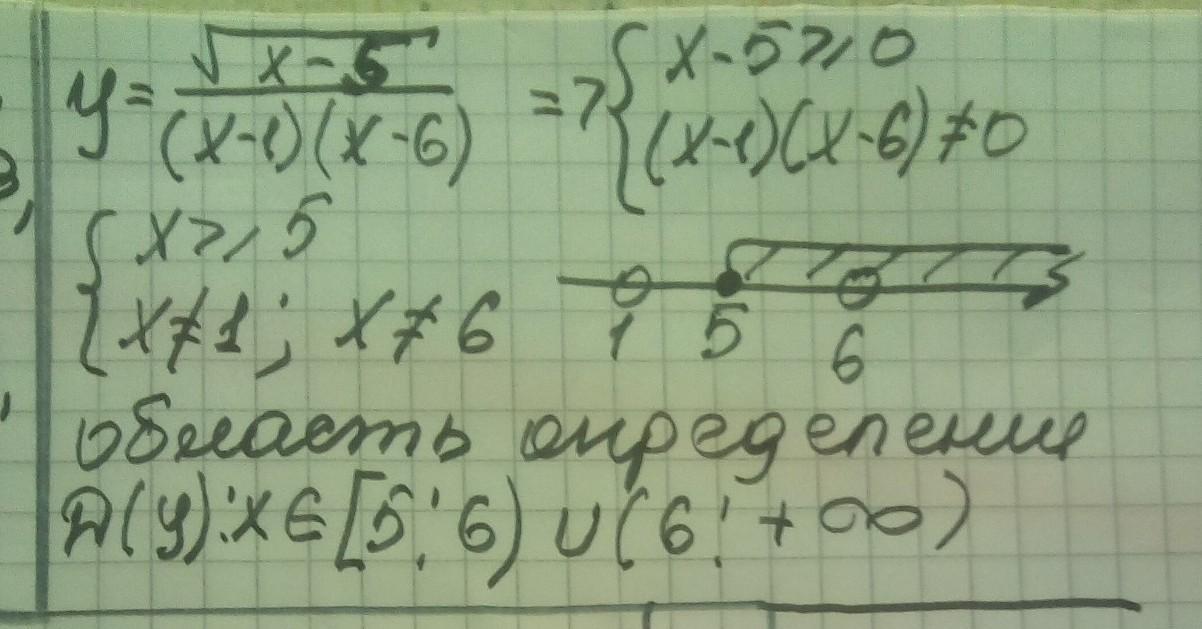 y = √(x-5) / (x-1)(x-6) => { x-5 ≥ 0
(x-1)(x-6) ≠ 0
{ x ≥ 5
x ≠ 1; x ≠ 6
1 5 6
область определения
D(y): x ∈ [5; 6) ∪ (6; +∞)